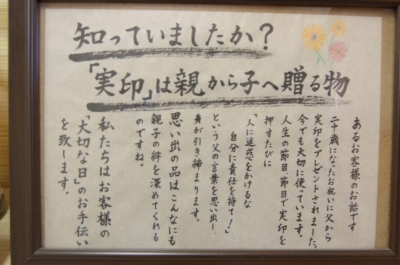 知っていましたか?
「実印」は親から子へ贈る物
あるお客様のお話です
二十歳になったお祝いに父から
実印をプレゼントされました。
今でも大切に使っています。
人生の節目、節目で実印を
押すたびに
「人に迷惑をかけるな
自分に責任を持て!」
という父の言葉を思い出し、
身が引き締まります。
思い出の品はこんなにも
親子の絆を深めてくれる
のですね。
私たちはお客様の
「大切な日」のお手伝い
を致します。